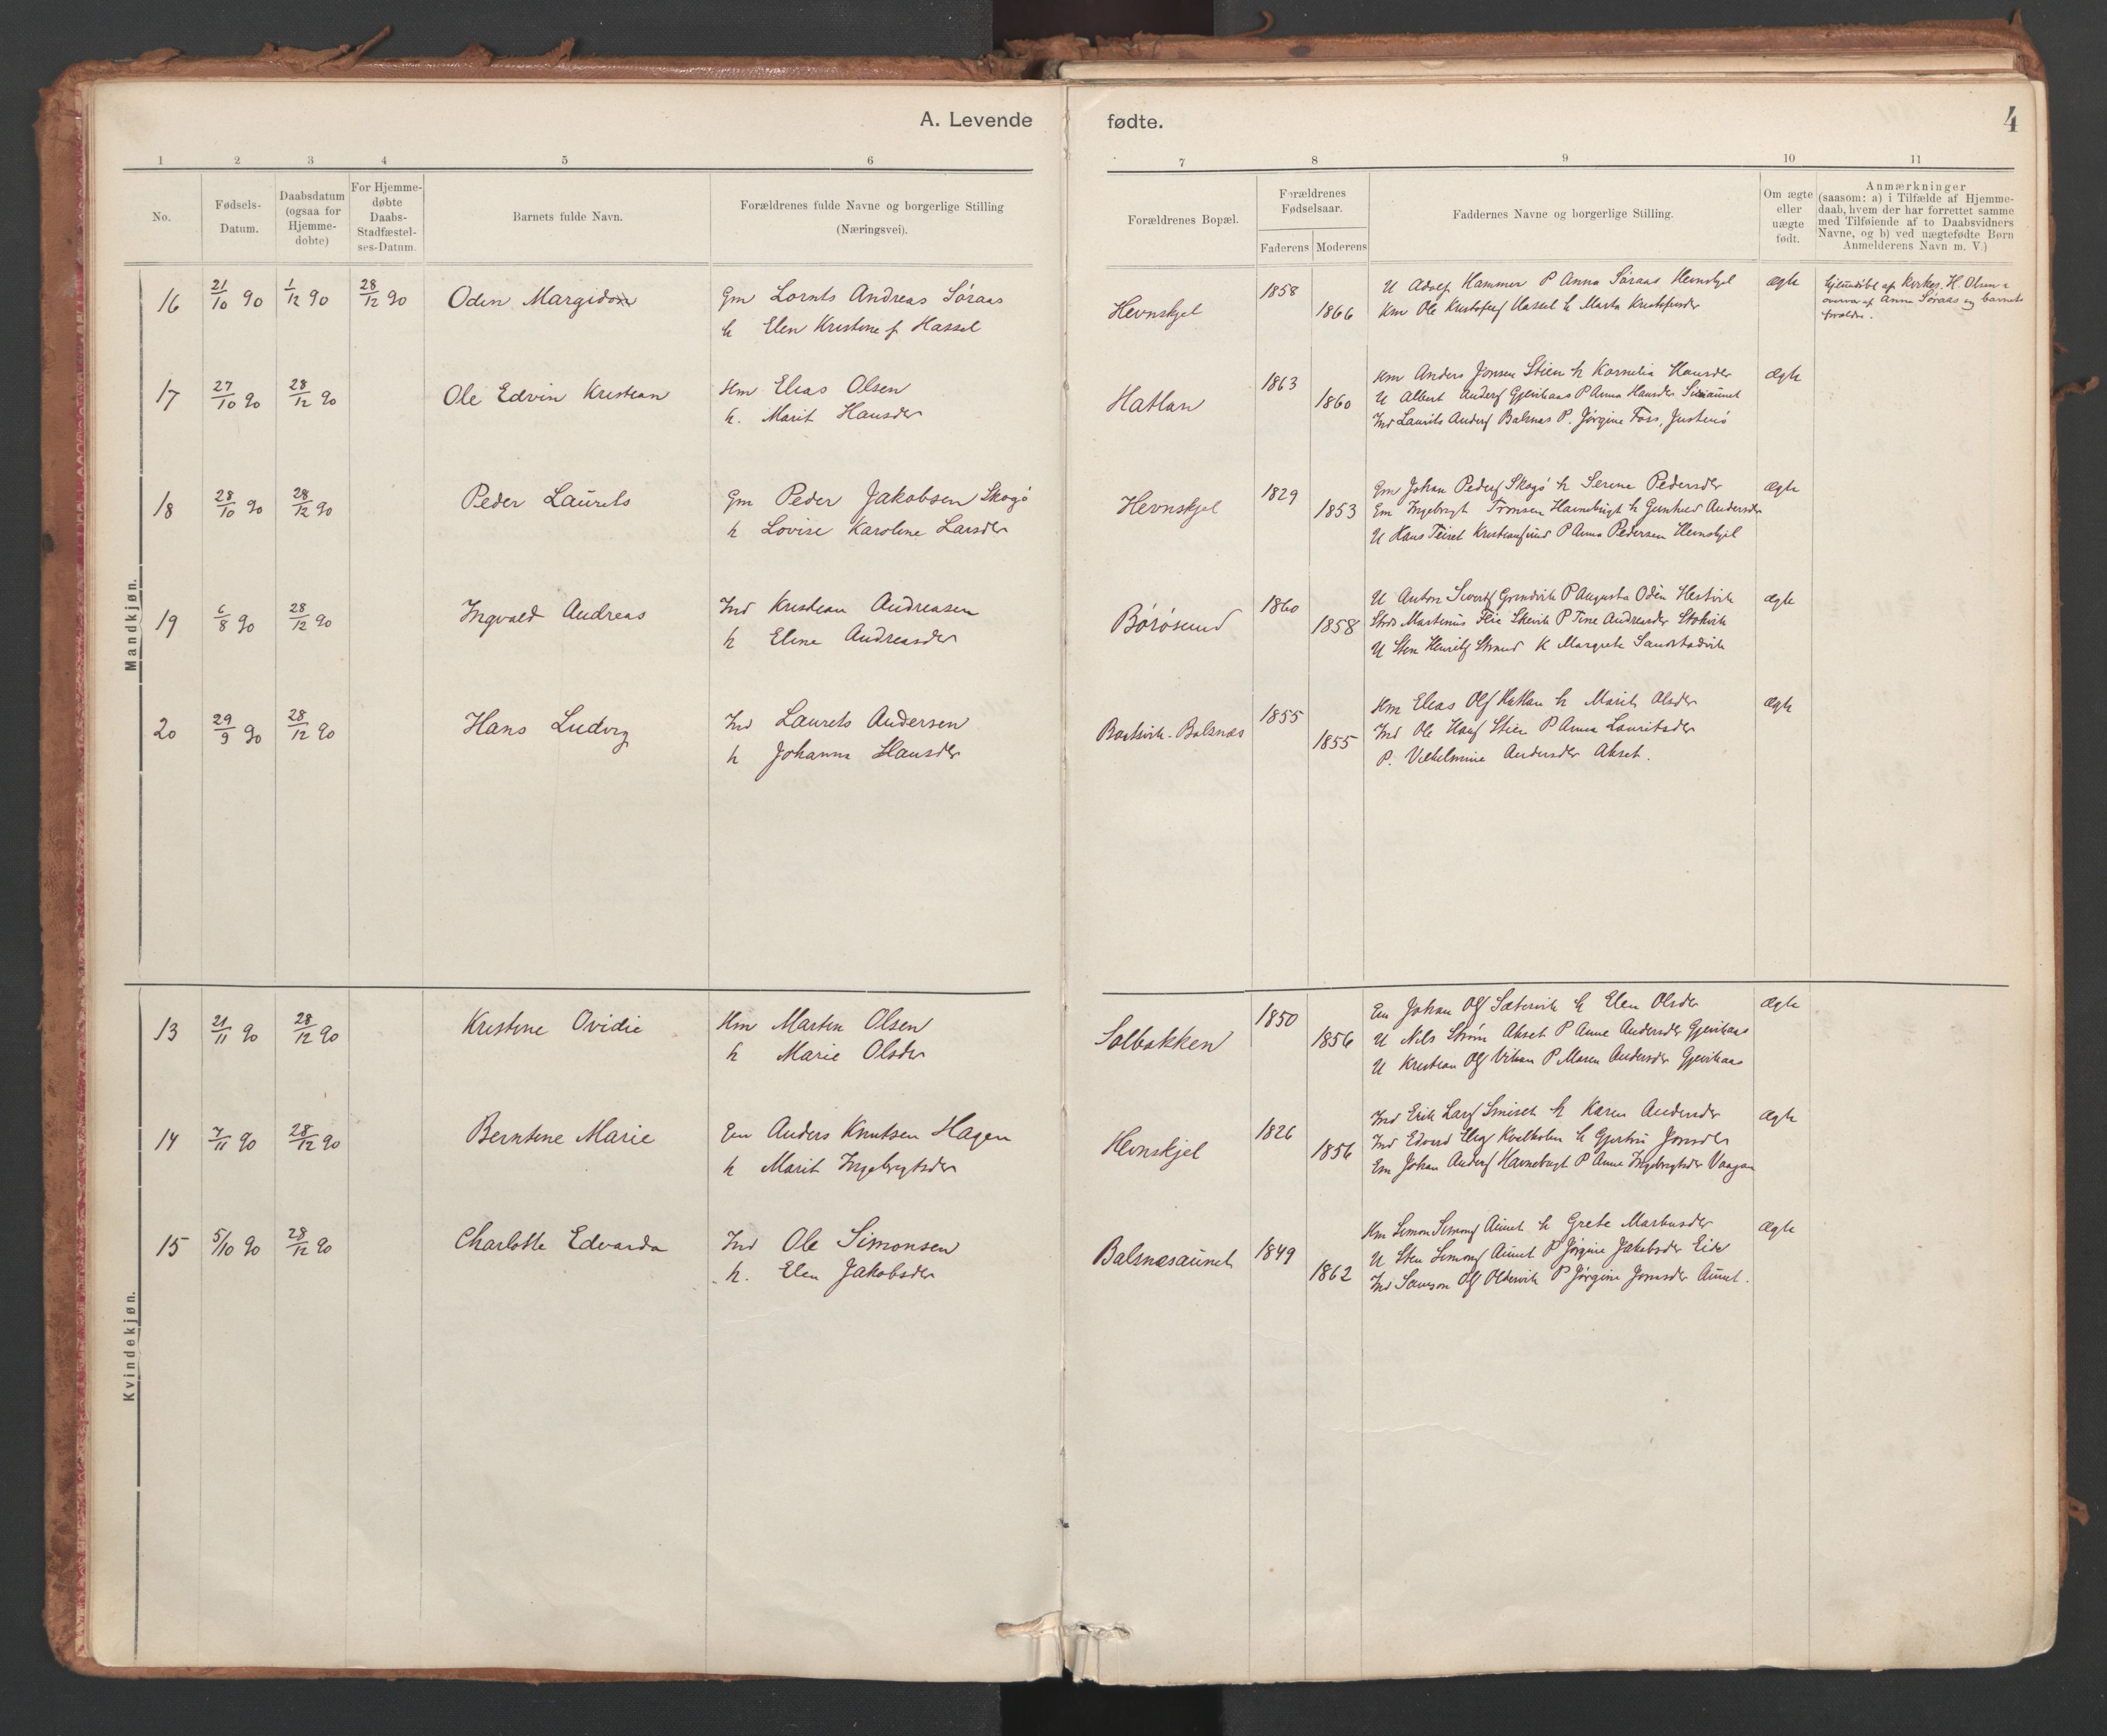 A. Levende fødte.
4
1 2 3 4 5 6 7 8 9 10 11
No.
Fødsels-
Datum.
Daabsdatum
(ogsaa for
Hjemme-
døbte)
For Hjemme-
døbte
Daabs-
Stadfæstel-
ses-Datum.
Barnets fulde Navn.
Forældrenes fulde Navne og borgerlige Stilling
(Næringsvei).
Forældrenes Bopæl.
Forældrenes
Fødselsaar.
Faderens Moderens
Faddernes Navne og borgerlige Stilling.
Om ægte
eller
uægte
født.
Anmærkninger
(saasom: a) i Tilfælde af Hjemme-
daab, hvem der har forrettet samme
med Tilføiende af to Daabsvidners
Navne, og b) ved uægtefødte Børn
Anmelderens Navn m. V.)
Mandkjøn.
16 21/10 90 1/12 90 28/12 90 Oden Margido
Gm Lornts Andreas Søraas
h Elen Kristine f. Hassel
Hevnskjel 1858 1866
U Adolf Hammer P Anna Søraas Hevnskjel
Km Ole Kristofers Hassel h Marta Kristofersdr
ægte
Hjemdøbt af Kirkes. H. Olsen i
overvær af Anna Søraas og barnets
forældre.
17 27/10 90 28/12 90 Ole Edvin Kristian
Hm Elias Olsen
h. Marit Hansdr
Hatlan 1863 1860
Hm Anders Jonsen Stien h Kornelia Hansdr
U Albert Anders Gjevikaas P Anna Hansdr
Ind Laurits Anders Balsnes P. Jørgine Fors, Justenø
ægte
18 28/10 90 28/12 90 Peder Laurits
Gm Peder Jakobsen Skogø
h Lovise Karoline Larsdr
Hevnskjel 1829 1853
Gm Johan Peders Skogø h Serene Pedersdr
Em Ingebrigt Tronsen Havnebugt h Gunhild Andersdr
U Hans Kristiansund P Anna Pedersen Hevnskjel
ægte
19 6/8 90 28/12 90 Ingvald Andreas
Ind Kristian Andreasen
h Eline Andreasdr
Børøsund 1860 1858
U Anton Siverts Grindvik P Augusta Odin Hestvik
Martinus Skevik P Tine Andreasdr Stokvik
U Sten Henriks Strand K Margrete Sandstadvik
ægte
20 29/9 90 28/12 90 Hans Ludvig
Ind Laurets Andersen
h Johanna Hansdr
Bastvik-Balsnæs 1855 1855
Hm Elias Ols Hatlan h Marit Olsdr
Ind Ole Hans Stien P Anna Lauritsdr
P. Vilhelmine Andersdr Akset.
ægte
Kvindekjøn.
13 21/11 90 28/12 90 Kristine Ovidie
Hm Martin Olsen
h Marie Olsdr
Solbakken 1850 1856
Em Johan Ols Sætervik h Elen Olsdr
U Nils Strøm Akset P Anne Andersdr Gjevikaas
U Kristian Ols Vikan P Maren Andersdr Gjevikaas
ægte
14 7/11 90 28/12 90 Berntine Marie
Em Anders Knutsen Hagen
h Marit Ingebrigtsdr
Hevnskjel 1826 1856
Ind Erik Lars Smiset h Karen Andersdr
Ind Edvard Kvalholm h Gjertru Jonsdr
Em Johan Anders Havnebugt P Anne Ingebrigtsdr Vaagan
ægte
15 5/10 90 28/12 90 Charlotte Edvarda
Ind Ole Simonsen
h. Elen Jakobsdr
Balsnesaunet 1849 1862
Hm Simon Simons Aunet h Grete Martinsdr
U Sten Simons Aunet P Jørgine Jakobsdr Eide
Ind Samson Ols Oldervik P Jørgine Jonsdr Aunet.
ægte